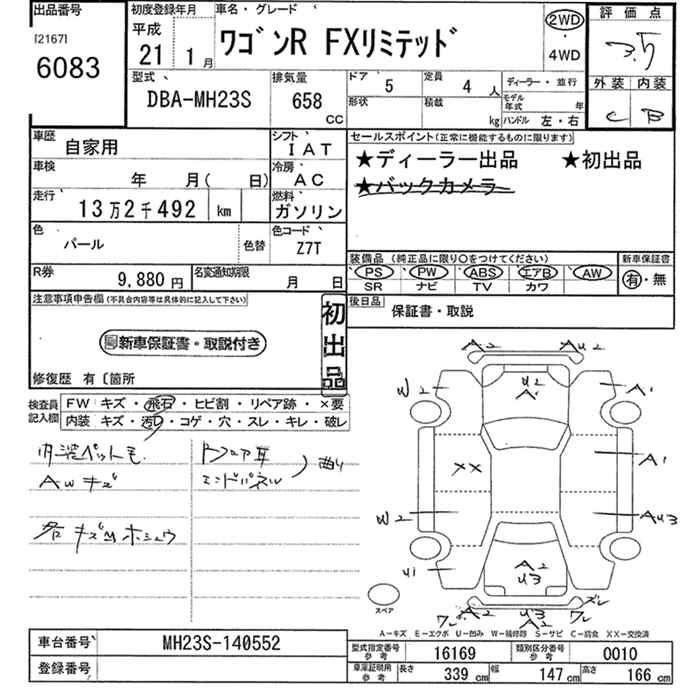 出品番号
[2167]
6083
初度登録年月
平成
21 1月
車名・グレード
ワゴンR FXリミテッド
2WD
・
4WD
評価点
3.5
外装 内装
C B
型式
DBA-MH23S
排気量
658
CC
ドア
5
定員
4人
ディーラー・並行
形状
積載
kg
モデル年式
年
ハンドル 左・右
車歴
自家用
シフト
IAT
車検
年 月( 日)
冷房
AC
走行
13万2千492 km
燃料
ガソリン
色
パール
色替
色コード
Z7T
R券
9,880円
名変通知期限
月 日
セールスポイント(正常に機能するものに限ります)
★ディーラー出品 ★初出品
★バックカメラ
装備品(純正品に限り○をつけてください)
PS PW ABS エアB AW
SR ナビ TV カワ
新車保証書
有・無
後日品
保証書・取説
注意事項申告欄(不具合内容等は具体的に記入して下さい)
新車保証書・取説付き
初出品
修復歴 有〔箇所
検査員記入欄
FW キズ・飛石・ヒビ割・リペア跡・×要
内装 キズ・汚レ・コゲ・穴・スレ・キレ・破レ
内装ペット毛
AWキズ
各キズUホシュウ
エンドパネル
曲り
A2 AU2
W2 U2 A A1
XX A1
W2 AU3
U1 A2 U3
ズレ
ワレ A2 U3 A2 ワレ
スペア
A−キズ E−エクボ U−凹み W−補修跡 S−サビ C−腐食 XX−交換済
車台番号
MH23S-140552
登録番号
型式指定番号 参考
16169
類別区分番号 参考
0010
車庫証明用 参考
長さ 339 cm 幅 147 cm 高さ 166 cm